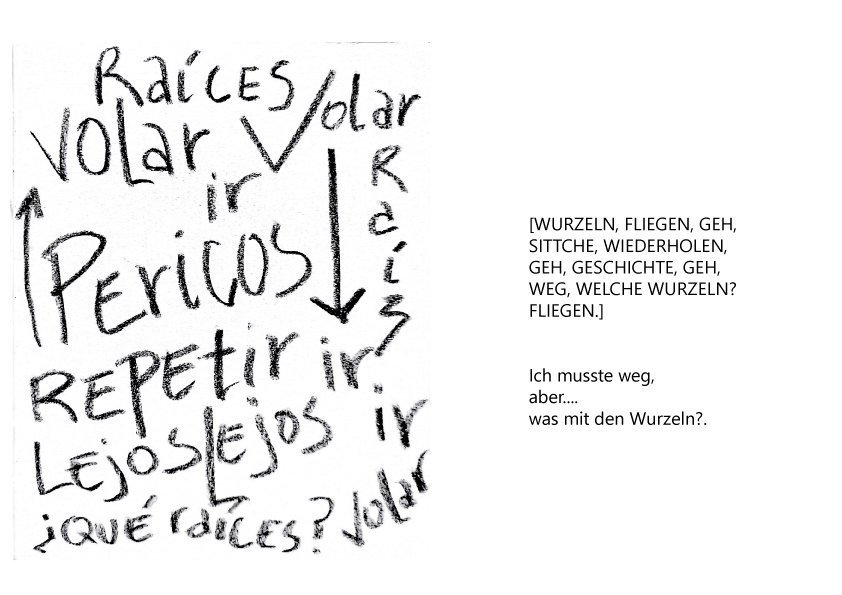 Raíces
Volar Volar
ir
Raíz
Pericos
REPEtir ir
LEjos LEjos ir
¿QUÉ raíces? Volar
[WURZELN, FLIEGEN, GEH,
SITTCHE, WIEDERHOLEN,
GEH, GESCHICHTE, GEH,
WEG, WELCHE WURZELN?
FLIEGEN.]
Ich musste weg,
aber....
was mit den Wurzeln?.